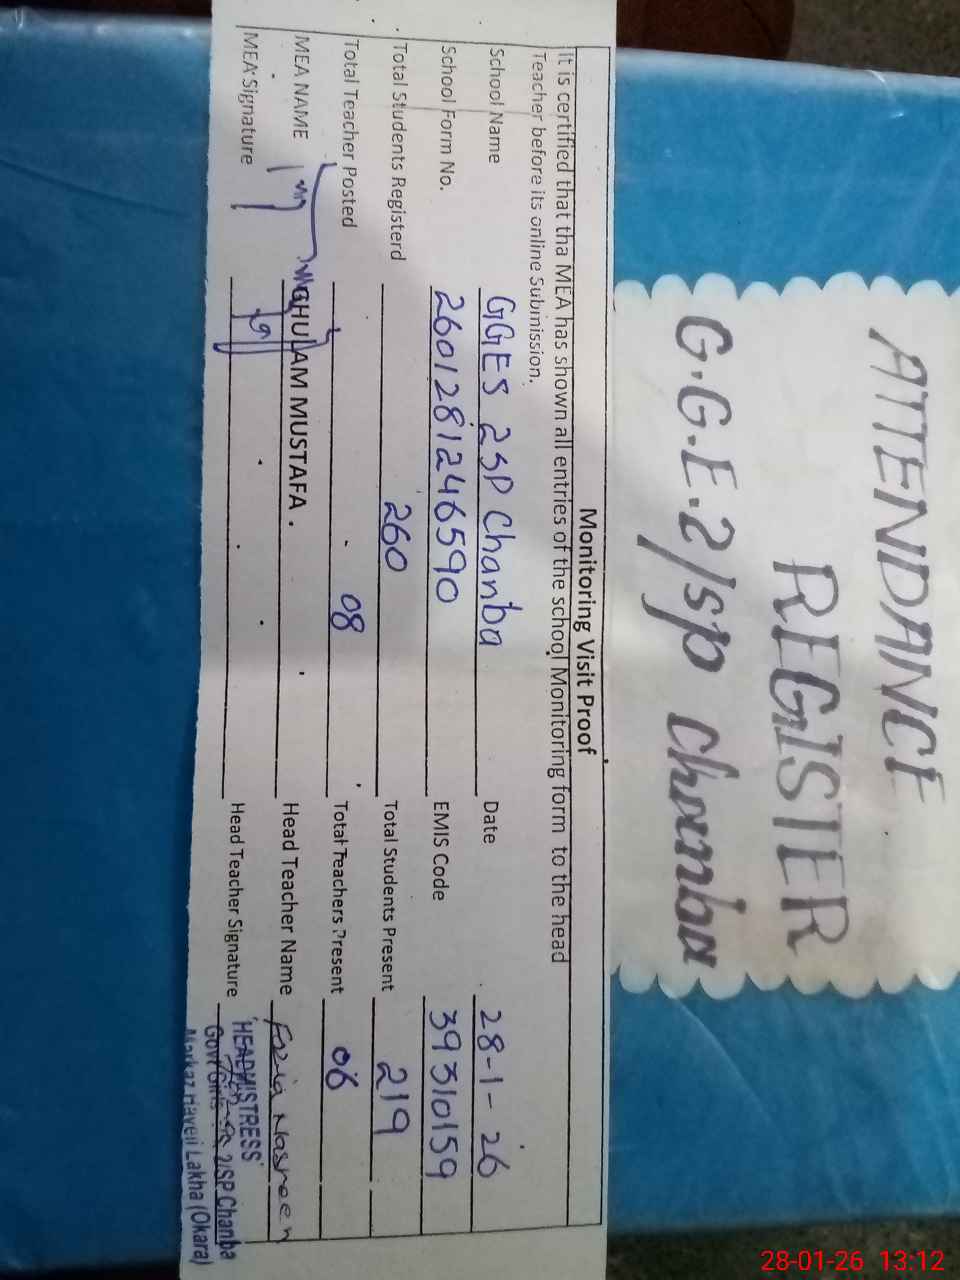 ATTENDANCE
REGISTER
G.G.E.2/sp Chanba
Monitoring Visit Proof
It is certified that tha MEA has shown all entries of the school Monitoring form to the head
Teacher before its online Submission.
School Name GGES 2SP Chanba Date 28-1-26
School Form No. 2601281246590 EMIS Code 39310159
Total Students Registerd 260 Total Students Present 219
Total Teacher Posted 08 Total Teachers Present 06
MEA NAME GHULAM MUSTAFA. Head Teacher Name Fozia Nasreen
MEA Signature Head Teacher Signature
HEADMISTRESS
Govt Girls 2/SP Chanba
Markaz Haveli Lakha (Okara)
28-01-26 13:12